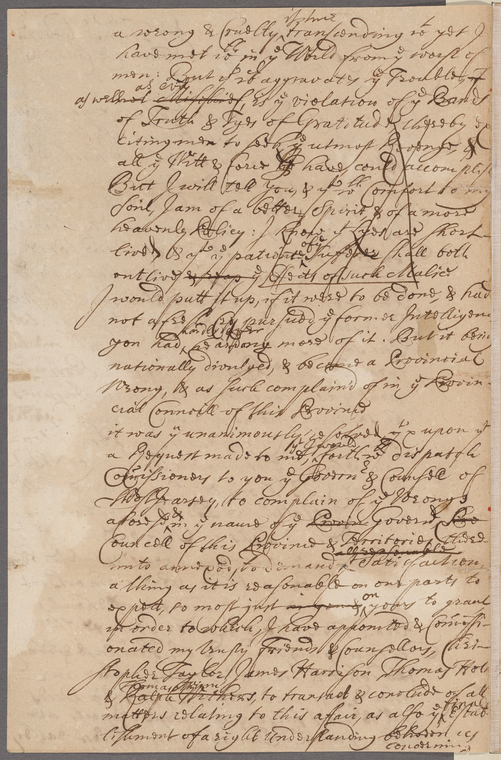 a wrong & Cruelty transcending it yet I
have met wth in ye World from ye worst of
men: But yt wch aggravates ye Trouble
as well as ye violation of ye Bands
of Truth & Tyes of Gratitude, thereby ex
citing men to seek ye utmost Revenge &
all ye Witt & force have could accomplish
But I will tell you, & to Comfort to my
Soul, I am of a better Spirit & of a more
heavenly Policy: I know yt Lyes are short
lived & yt ye patient Sufferer shall both
outlive & stop ye effects of such Malice
I would putt it up, if it were to be done, & had
not afresh pursued ye former Intelligence
you had, hearing more of it. But it being
nationally divulged, & became a Provincial
Wrong, & as such complaind of in ye Provin-
cial Councill of this Province
it was ye unanimously resolved yt upon ye
a Request made to me, forthwth dispatch
Comissioners to you ye Govern & Counsell of
West Jarsey, to complain of ye Wrongs
aforesd in ye name of ye Govern &
Councell of this Province & Territories
unto annexed, & to demand Satisfaction
a thing as it is reasonable on our parts to
expect, so most just on yours to grant
in order to which, I have appointed & Comissi-
onated my trusty Friends & Counsellors, Chri-
stopher Taylor, James Harrison Thomas Hol
& Ralph Withers, to transact & conclude of all
matters relating to this affair, as also ye Estab-
lishment of a right Understanding between us
concerning